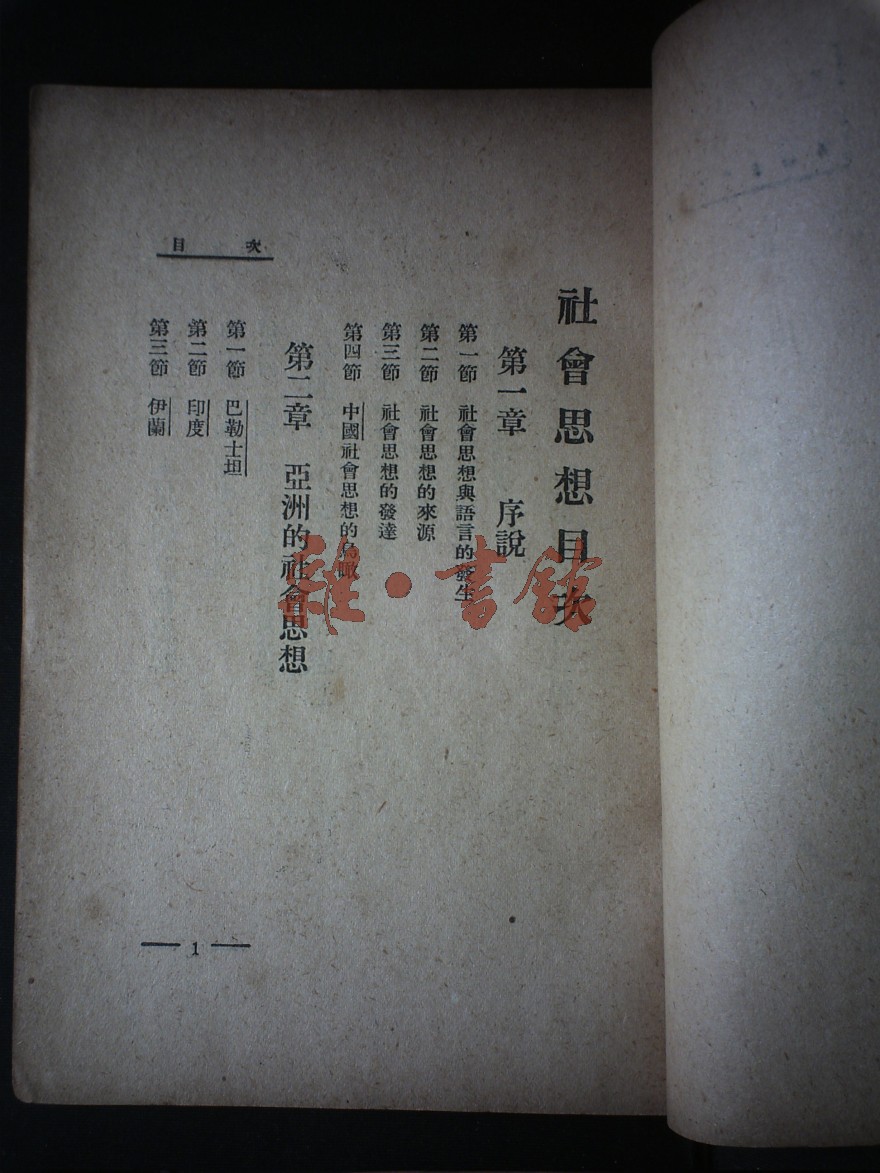 社會思想目次
第一章 序說
第一節 社會思想與語言的發生
第二節 社會思想的來源
第三節 社會思想的發達
第四節 中國社會思想的鳥瞰
第二章 亞洲的社會思想
第一節 巴勒士坦
第二節 印度
第三節 伊蘭
目次
1
雜·書館